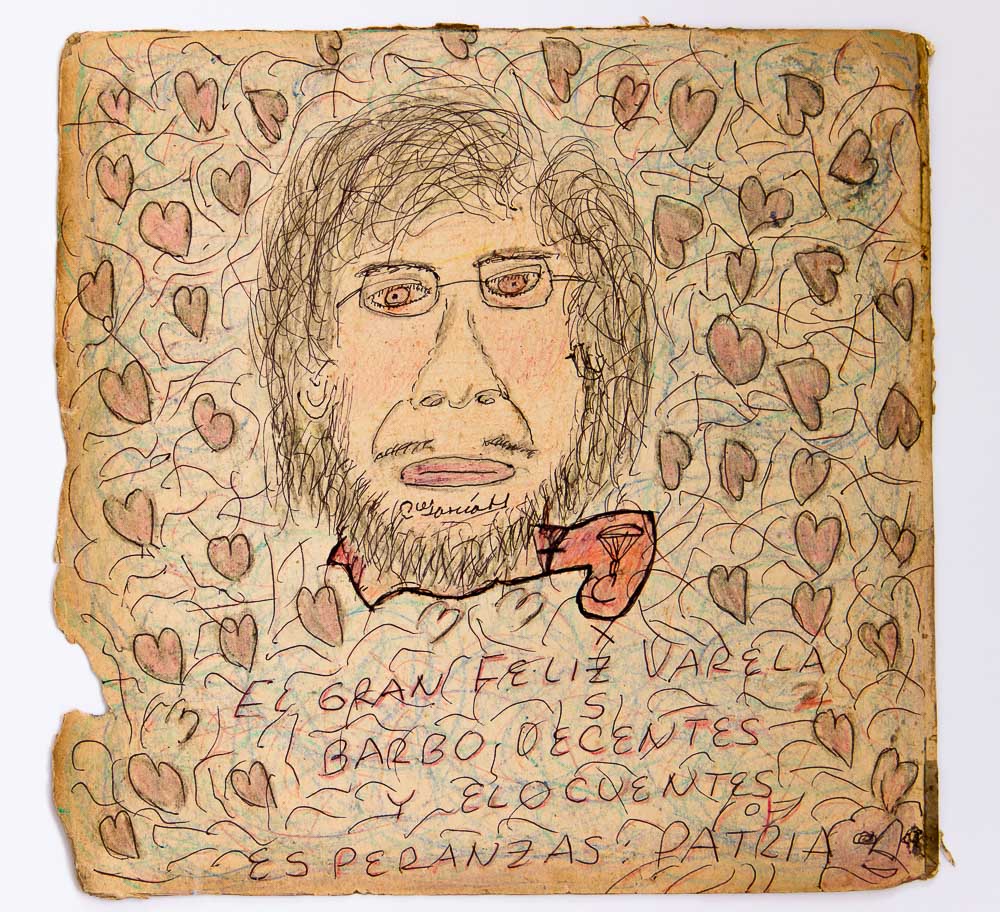 C García H
X
EL GRAN FELIZ VARELA
S
BARBO, DECENTES
Y ELOCUENTES
ESPERANZAS: PATRIA